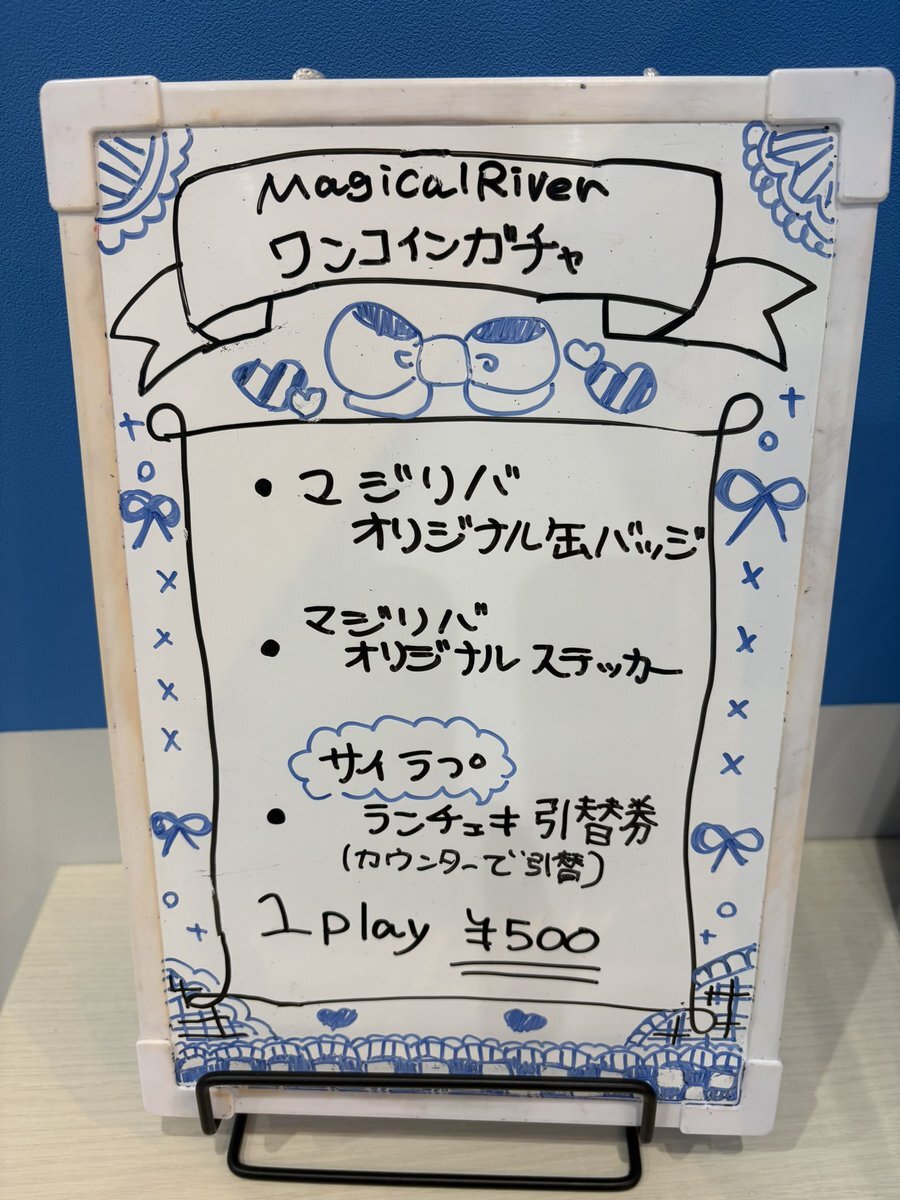 MagicalRiver
ワンコインガチャ
・マジリバ
オリジナル缶バッジ
マジリバ
・オリジナルステッカー
サイラプ
・ランチェキ引替券
(カウンターで引替)
1play ¥500